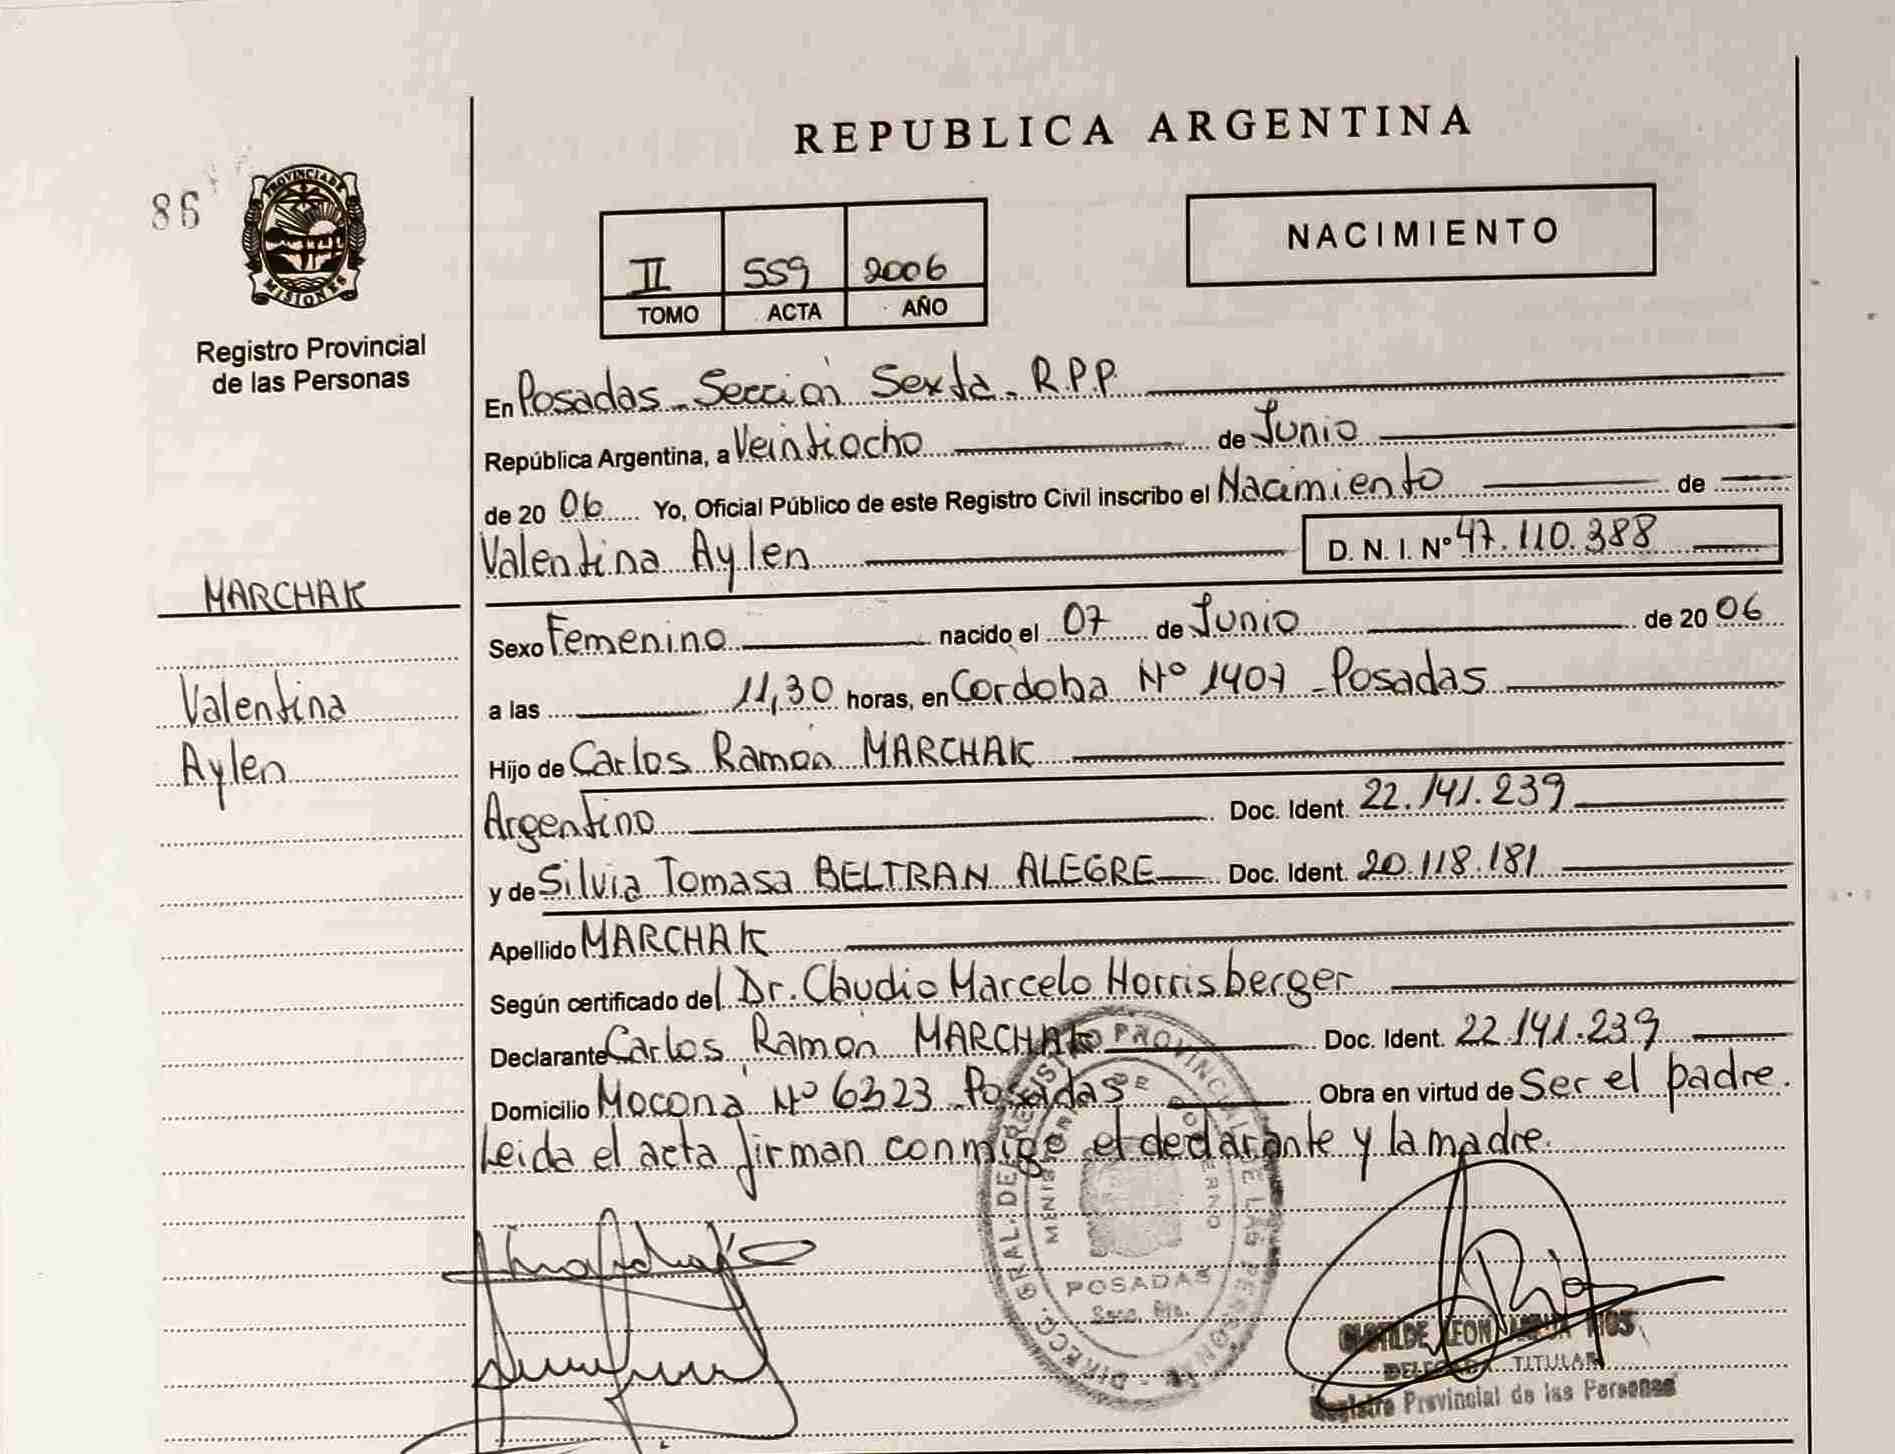 REPUBLICA ARGENTINA
86
PROVINCIA DE
MISIONES
Registro Provincial
de las Personas
II 559 2006
TOMO ACTA AÑO
NACIMIENTO
En Posadas - Sección Sexta - R.P.P.
República Argentina, a Veintiocho de Junio
de 20 06 Yo, Oficial Público de este Registro Civil inscribo el Nacimiento de
Valentina Aylen D. N. I. Nº 47.110.388
MARCHAK
Valentina
Aylen
Sexo Femenino nacido el 07 de Junio de 20 06
a las 11,30 horas, en Cordoba Nº 1407 - Posadas
Hijo de Carlos Ramón MARCHAK
Argentino Doc. Ident. 22.141.239
y de Silvia Tomasa BELTRAN ALEGRE Doc. Ident. 20.118.181
Apellido MARCHAK
Según certificado del Dr. Claudio Marcelo Horrisberger
Declarante Carlos Ramón MARCHAK Doc. Ident. 22.141.239
Domicilio Mocona Nº 6323 - Posadas Obra en virtud de Ser el padre.
Leida el acta firman conmigo el declarante y la madre.
DIRECC. GRAL. DE REGISTRO PROVINCIAL DE LAS PERSONAS
MINISTERIO DE GOBIERNO
POSADAS
CLOTILDE LEON RIOS
DELEGADA TITULAR
Registro Provincial de las Personas